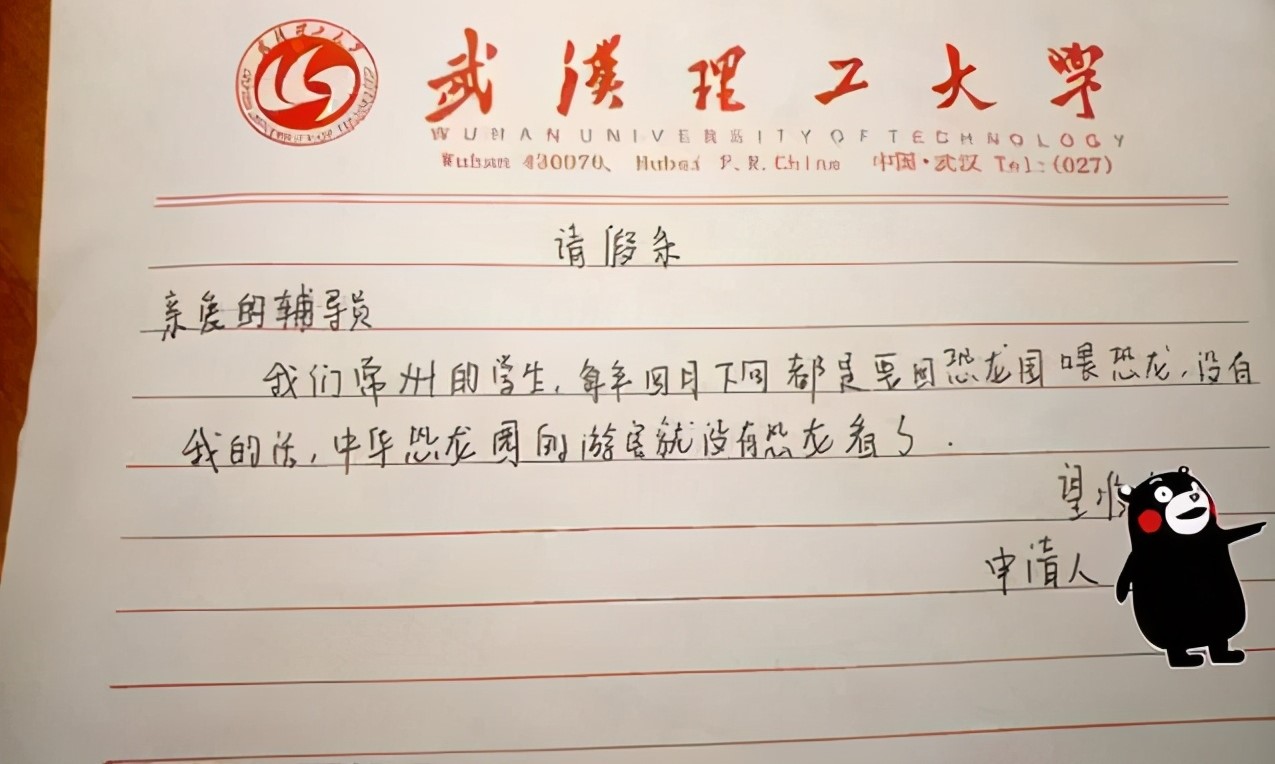 武汉理工大学
WUHAN UNIVERSITY OF TECHNOLOGY
430070、 Hubei P.R.China 中国·武汉 Tel:(027)
请假条
亲爱的辅导员
我们常州的学生,每年四月下旬都是要回恐龙园喂恐龙,没有
我的话,中华恐龙园的游客就没有恐龙看了.
望
申请人